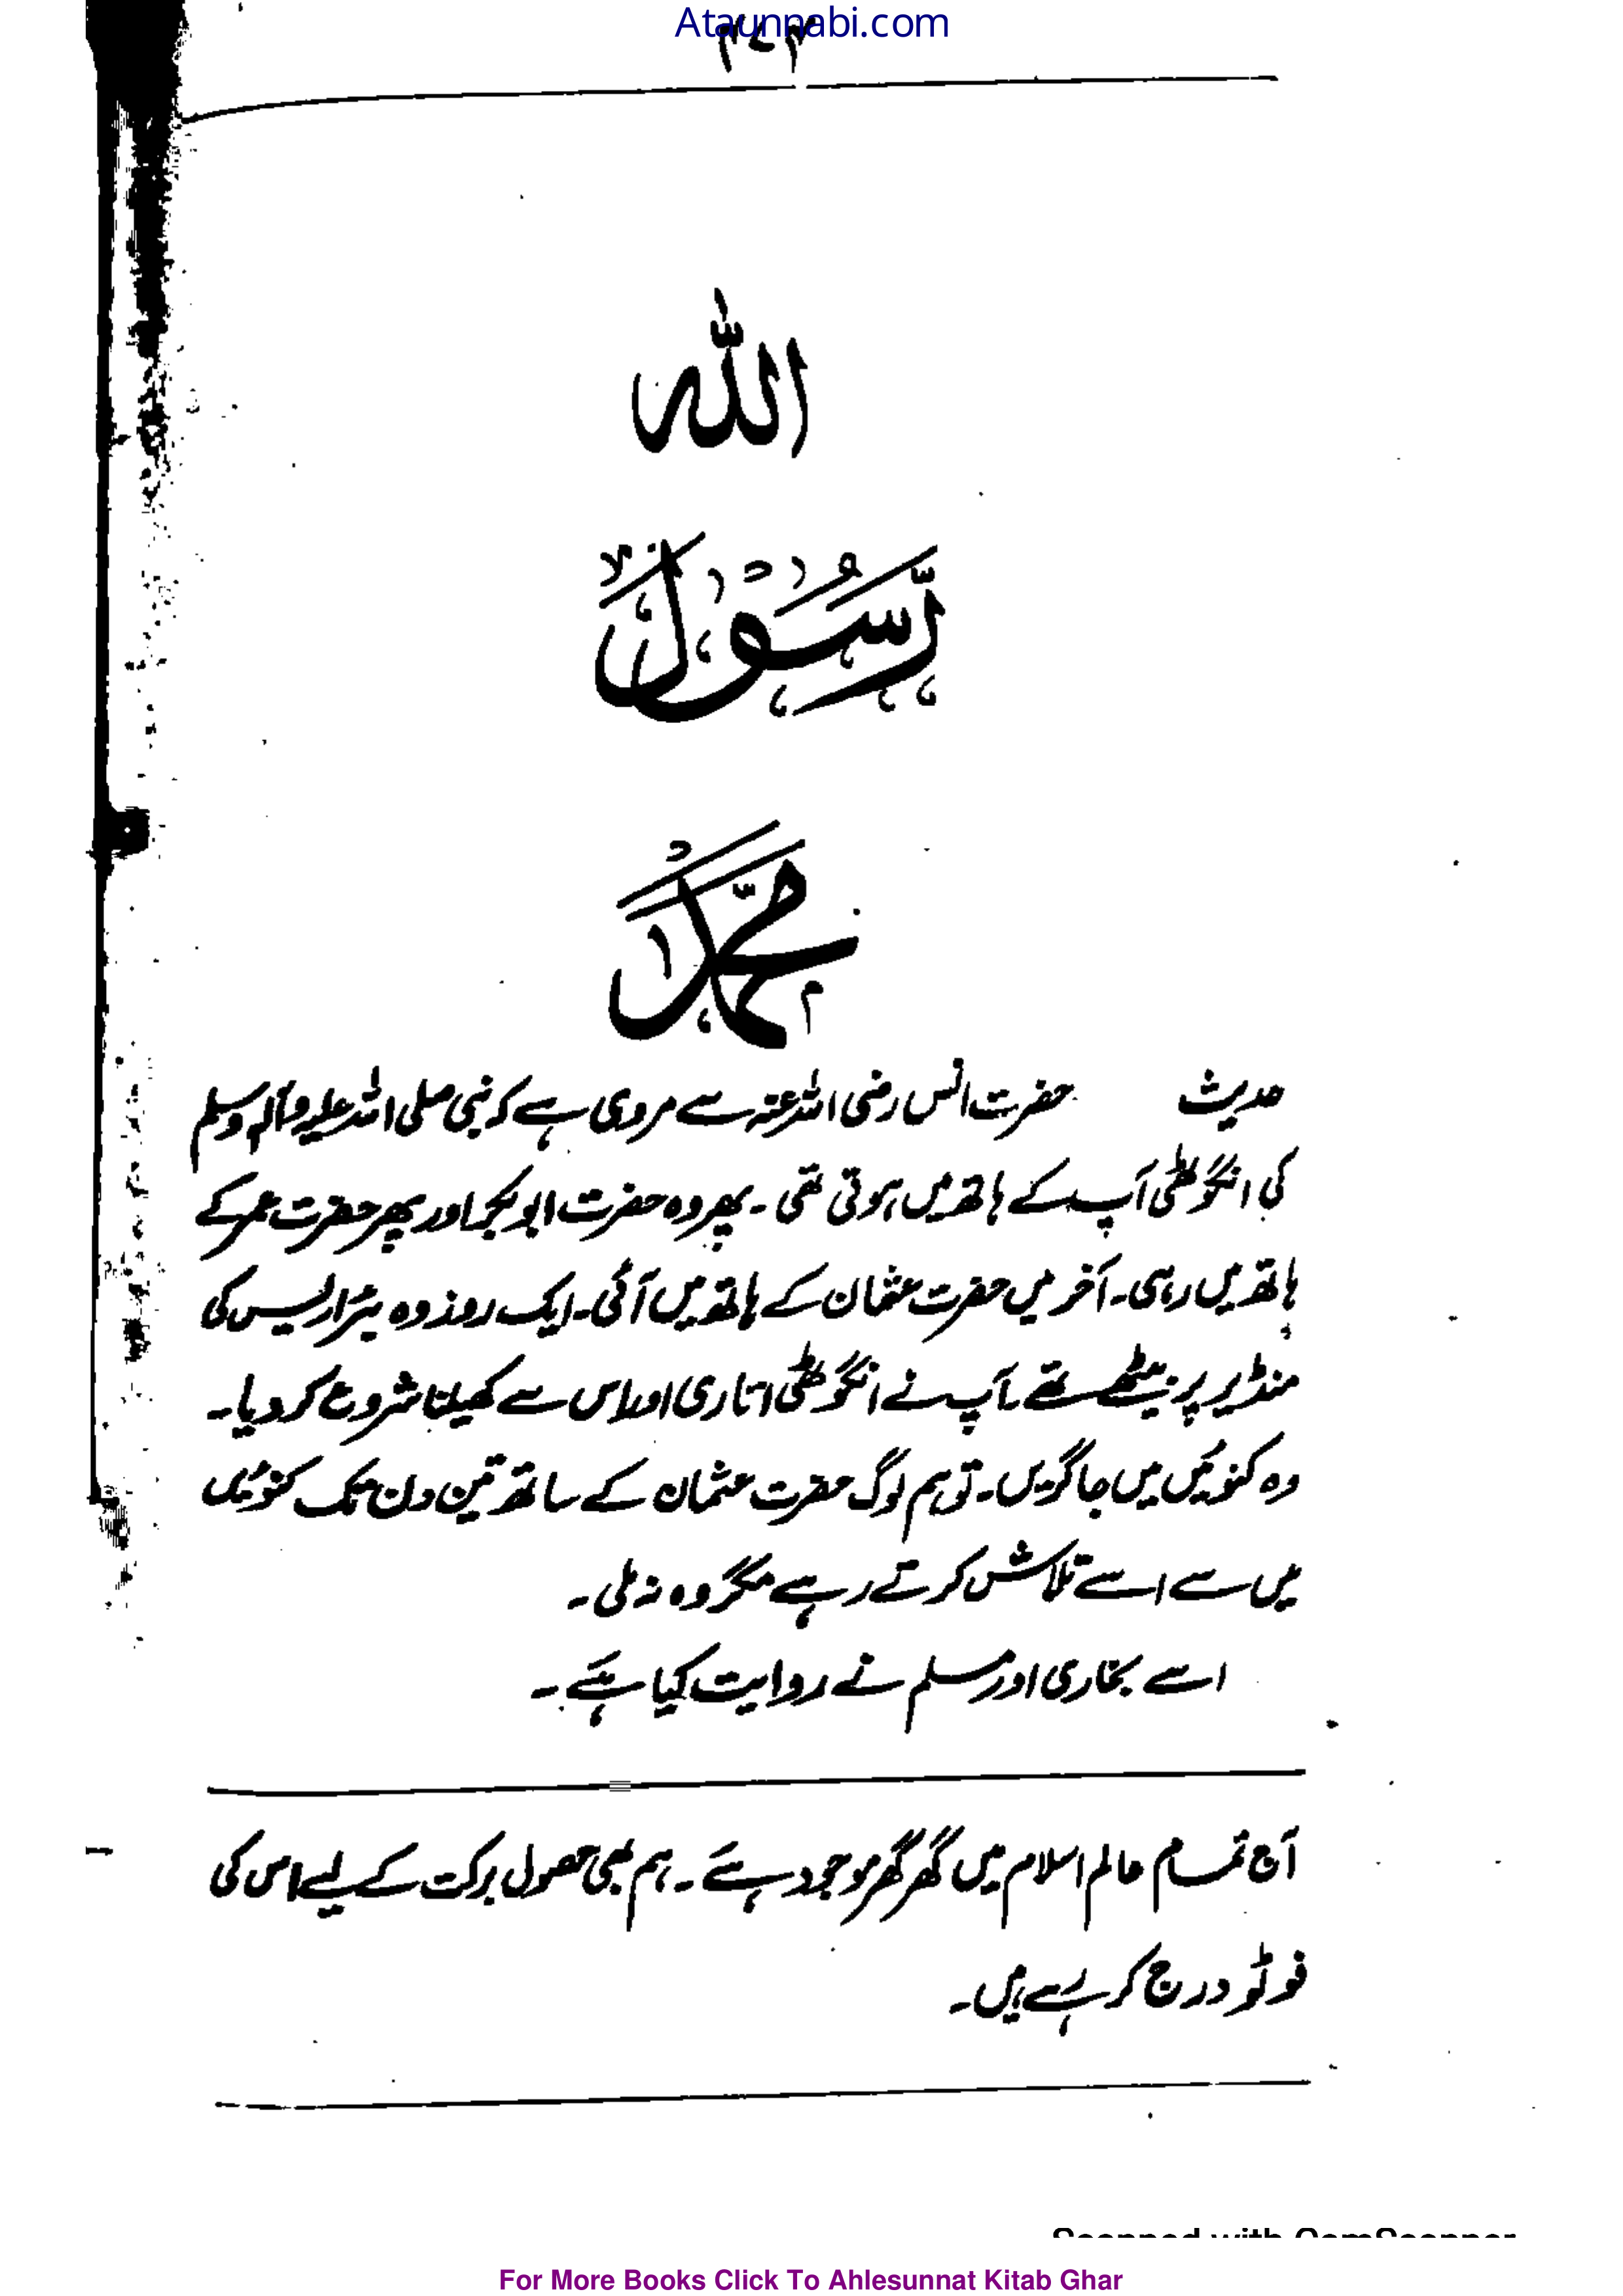 Ataunnabi.com
اللّٰہ
رَّسُوْلُ
مُحَمَّدٌ
حدیث حضرت انس رضی اللہ عنہ سے مروی ہے کہ نبی صلی اللہ علیہ وآلہ وسلم
کی انگوٹھی آپ کے ہاتھ میں ہوتی تھی ۔ پھر وہ حضرت ابوبکر اور پھر حضرت عمر کے
ہاتھ میں رہی۔ آخر میں حضرت عثمان کے ہاتھ میں آئی۔ ایک روز وہ بئرِ اریس کی
منڈیر پر بیٹھے تھے ۔ آپ نے انگوٹھی اتاری اور اس سے کھیلنا شروع کر دیا۔
وہ کنوئیں میں جا گریں۔ تو ہم لوگ حضرت عثمان کے ساتھ تین دن تک کنوئیں
میں سے اسے تلاش کرتے رہے مگر وہ نہ ملی ۔
اسے بخاری اور مسلم نے روایت کیا ہے ۔
آج تمام عالم اسلام میں گھر گھر موجود ہے ۔ ہم بھی حصول برکت کے لیے اس کی
فوٹو درج کر رہے ہیں۔
Scanned with CamScanner
For More Books Click To Ahlesunnat Kitab Ghar